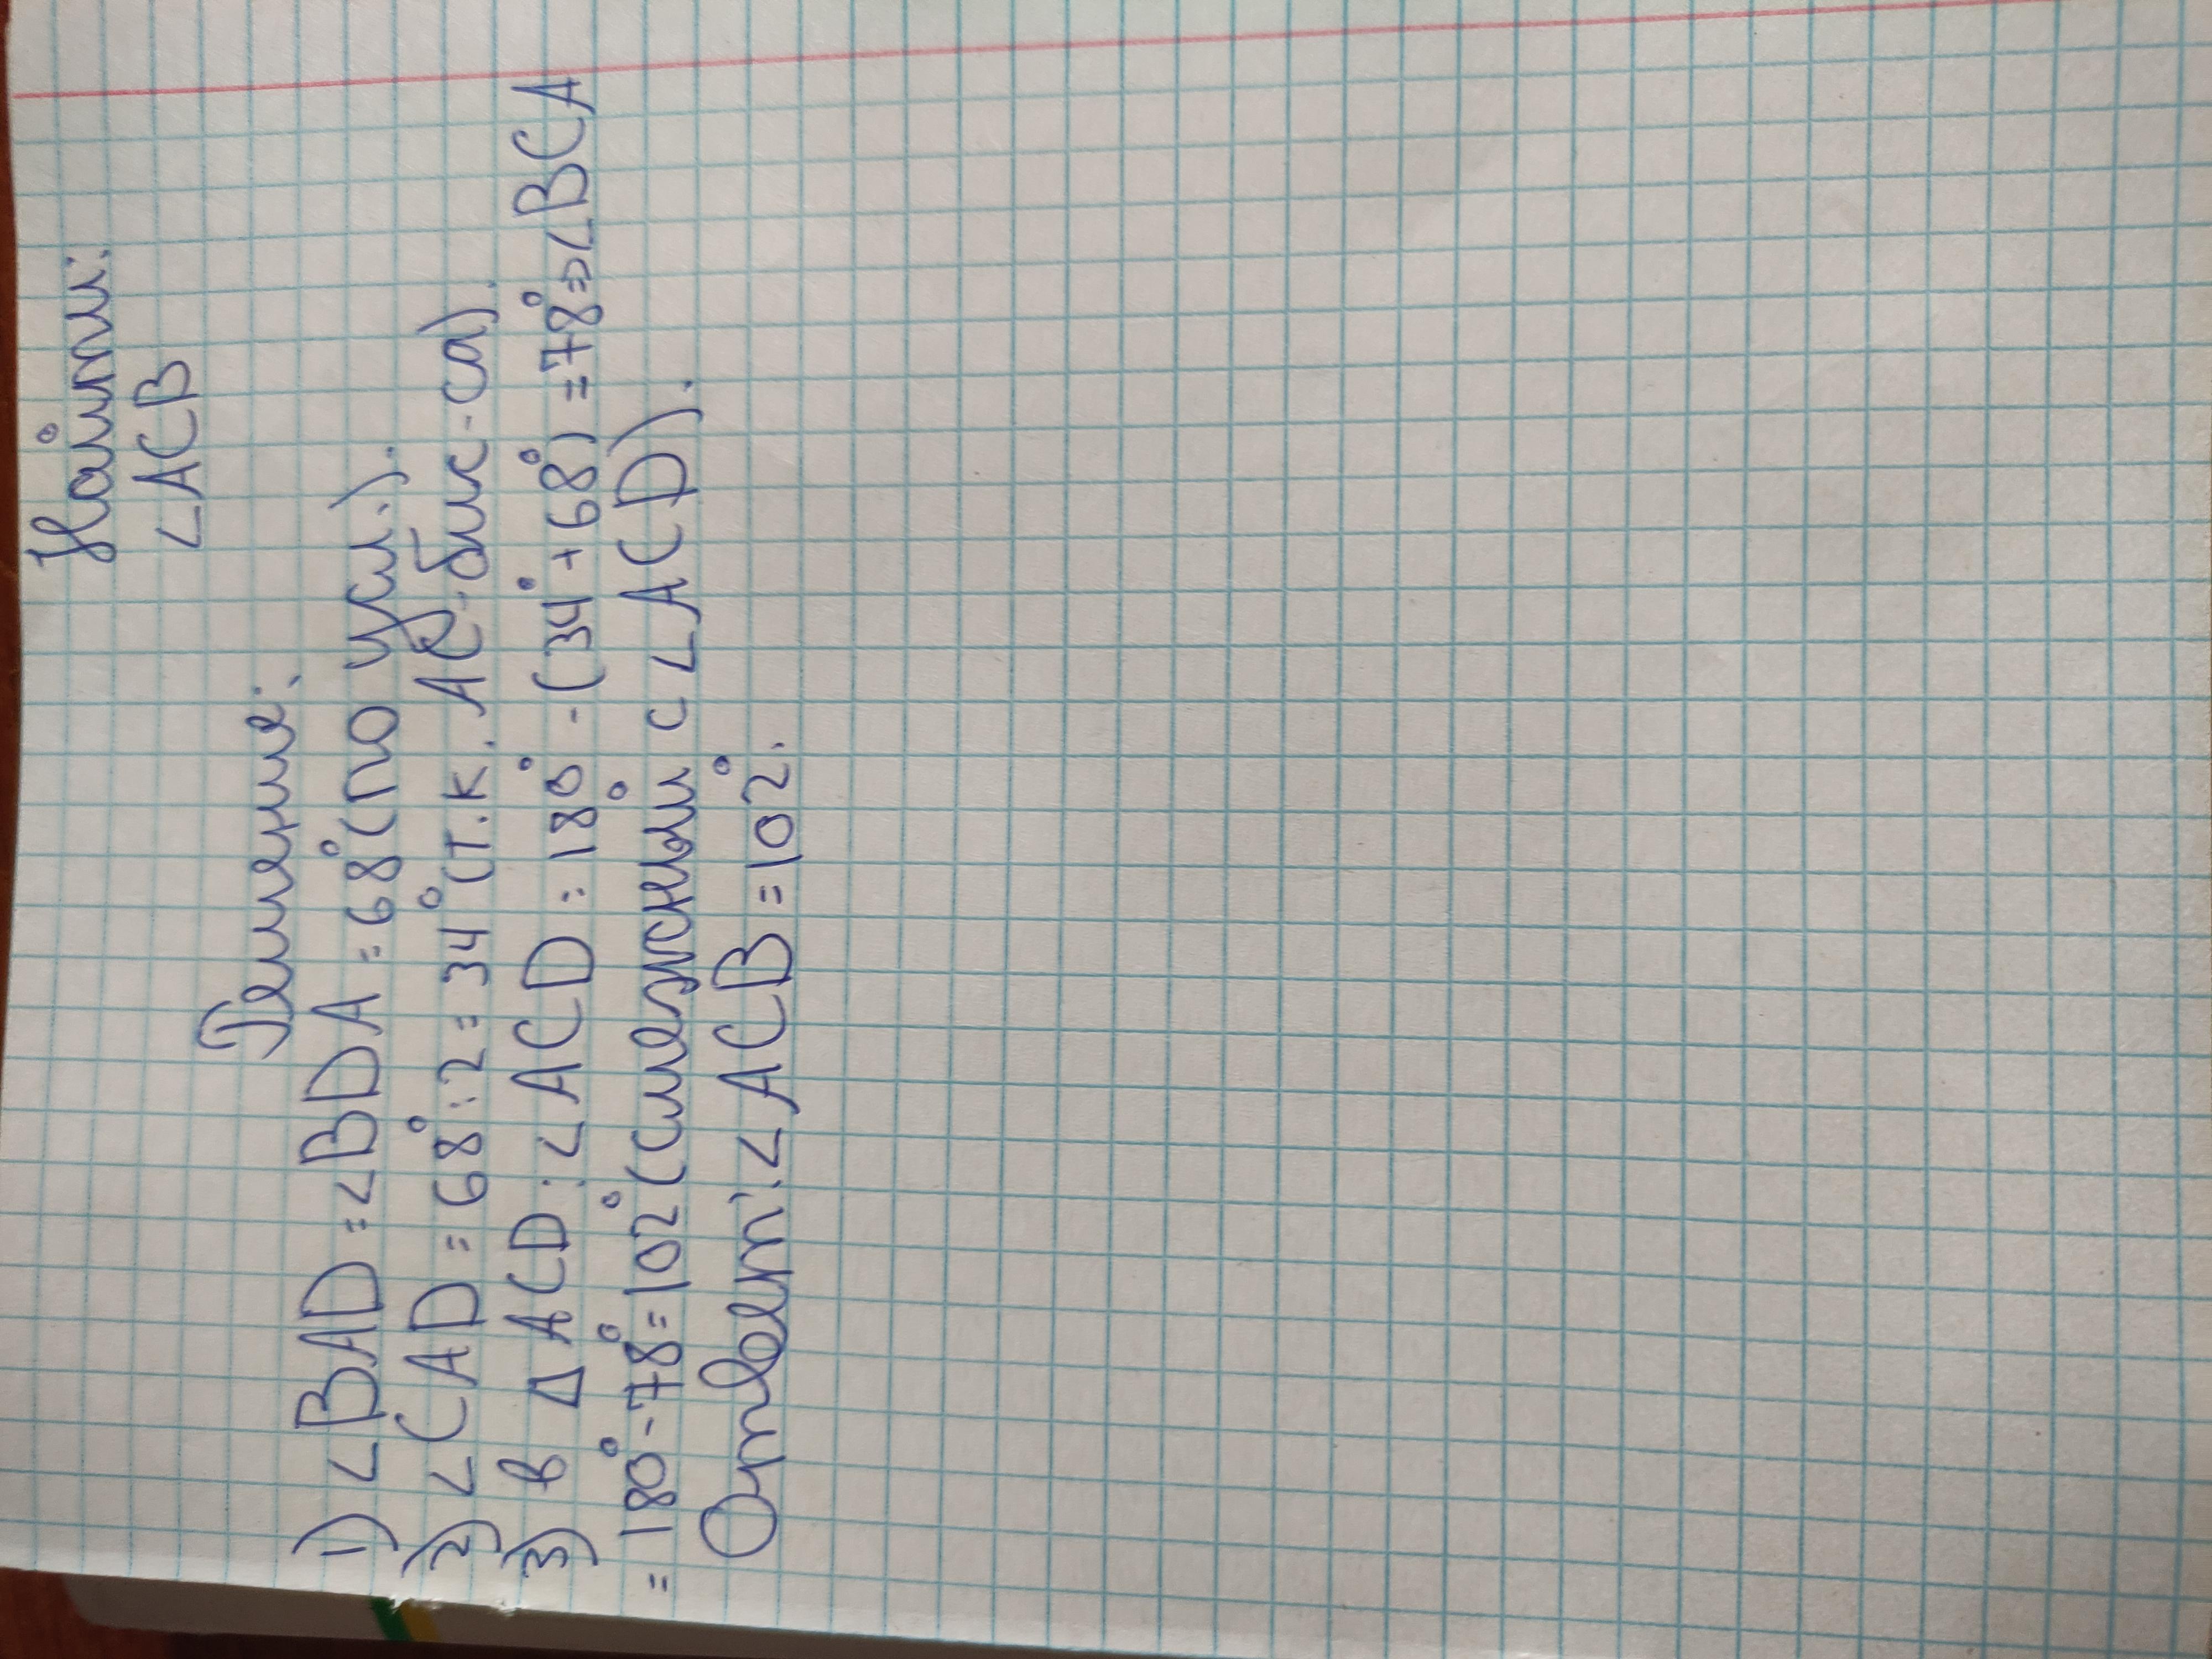 Найти:
∠ACB
Решение:
1) ∠BAD = ∠BDA = 68° (по усл.).
2) ∠CAD = 68° : 2 = 34° (т.к. AC - бис-са).
3) в △ ACD : ∠ ACD = 180° - (34° + 68°) = 78° => ∠BCA
= 180° - 78° = 102° (смежный с ∠ACD).
Ответ: ∠ ACB = 102°.